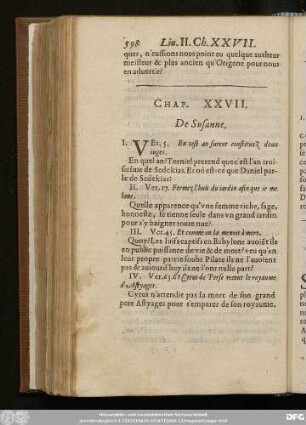 598 Liu. II. Ch. XXVII.
ques, n'eussions nous point eu quelque autheur
meilleur & plus ancien qu'Origene pour nous
en aduertir?
CHAP. XXVII.
De Susanne.
I. VEr. 5. En cest an furent constituez deux
iuges.
En quel an? Torniel pretend que c'est l'an troi-
siesme de Sedekias. Et où est-ce que Daniel par-
le de Sedekias?
II. Ver. 17. Fermez l'huis du iardin afin que ie me
laue.
Quelle apparence qu'vne femme riche, sage,
honneste, se tienne seule dans vn grand iardin
pour s'y baigner toute nuë?
III. Ver. 45. Et comme on la menoit à mort.
Quoy! Les Iuifs captifs en Babylone auoiẽt ils
en public puissance de vie & de mort? veu qu'en
leur propre patrie soubs Pilate ils ne l'auoient
pas & auiourd'huy ils ne l'ont nulle part?
IV. Ver. 65. Et Cyrus de Perse receut le royaume
d'Astyages.
Cyrus n'attendit pas la mort de son grand
pere Astyages pour s'emparer de son royaume.
DFG